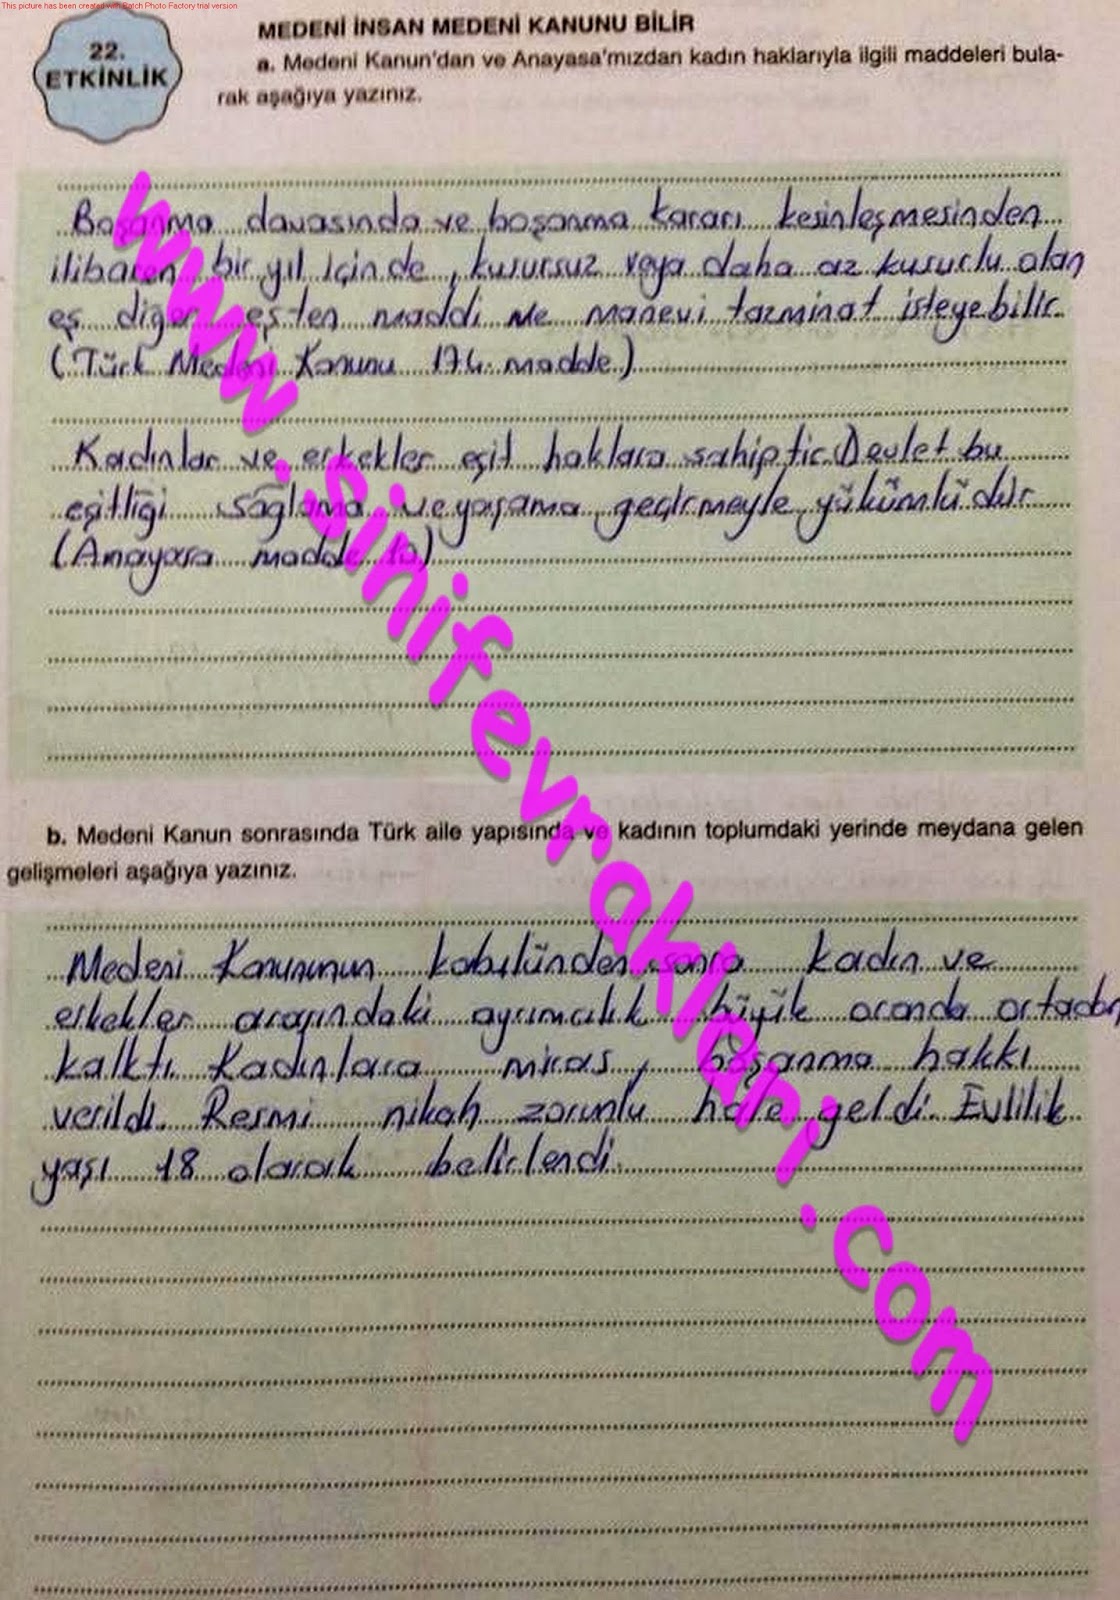 This picture has been created with Batch Photo Factory trial version
22.
ETKİNLİK
MEDENİ İNSAN MEDENİ KANUNU BİLİR
a. Medeni Kanun'dan ve Anayasa'mızdan kadın haklarıyla ilgili maddeleri bula-
rak aşağıya yazınız.
Boşanma davasında ve boşanma kararı kesinleşmesinden
itibaren bir yıl içinde, kusursuz veya daha az kusurlu olan
eş diğer eşten maddi ve manevi tazminat isteyebilir.
(Türk Medeni Kanunu 174. madde)
Kadınlar ve erkekler eşit haklara sahiptir. Devlet bu
eşitliği sağlama ve yaşama geçirmeyle yükümlüdür
(Anayasa madde 10)
b. Medeni Kanun sonrasında Türk aile yapısında ve kadının toplumdaki yerinde meydana gelen
gelişmeleri aşağıya yazınız.
Medeni Kanununun kabulünden sonra kadın ve
erkekler arasındaki ayrımcılık büyük oranda ortadan
kalktı. Kadınlara miras, boşanma hakkı
verildi. Resmi nikah zorunlu hale geldi. Evlilik
yaşı 18 olarak belirlendi.
www.sinifevraklari.com